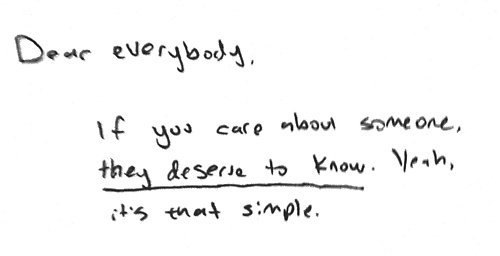 Dear everybody,
If you care about someone,
they deserve to know. Yeah,
it's that simple.